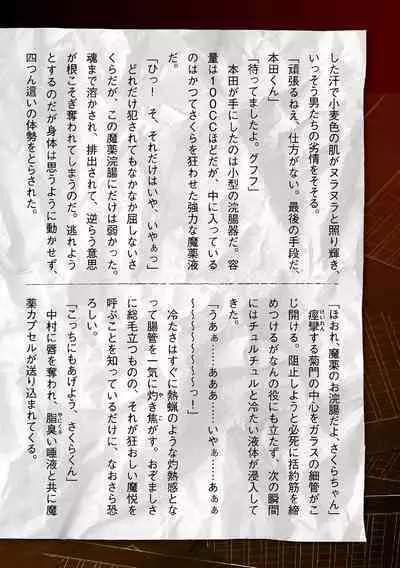 した汗で小麦色の肌がヌラヌラと照り輝き、
いっそう男たちの劣情をそそる。
「頑張るねえ。仕方がない。最後の手段だ、
本田くん」
「待ってましたよ。グフフ」
本田が手にしたのは小型の浣腸器だ。容
量は100CCほどだが、中に入っている
のはかつてさくらを狂わせた強力な魔薬液
だ。
「ひっ！　そ、それだけはいや、いやぁっ」
どれだけ犯されてもなかなか屈しないさ
くらだが、この魔薬浣腸にだけは弱かった。
魂まで溶かされ、排出されて、逆らう意思
が根こそぎ奪われてしまうのだ。逃れよう
とするのだが身体は思うように動かせず、
四つん這いの体勢をとらされた。
「ほおれ、魔薬のお浣腸だよ、さくらちゃん」
痙攣する菊門の中心をガラスの細管がこ
じ開ける。阻止しようと必死に括約筋を締
めつけるがなんの役にも立たず、次の瞬間
にはチュルチュルと冷たい液体が浸入して
きた。
「うあぁ……あああ……いやぁ……あぁぁ
～～～～～～～～～っ！」
冷たさはすぐに熱蝋のような灼熱感とな
って腸管を一気に灼き焦がす。おぞましさ
に総毛立つものの、それが狂おしい魔悦を
呼ぶことを知っているだけに、なおさら恐
ろしい。
「こっちにもあげよう、さくらくん」
中村に唇を奪われ、脂臭い唾液と共に魔
薬カプセルが送り込まれてくる。